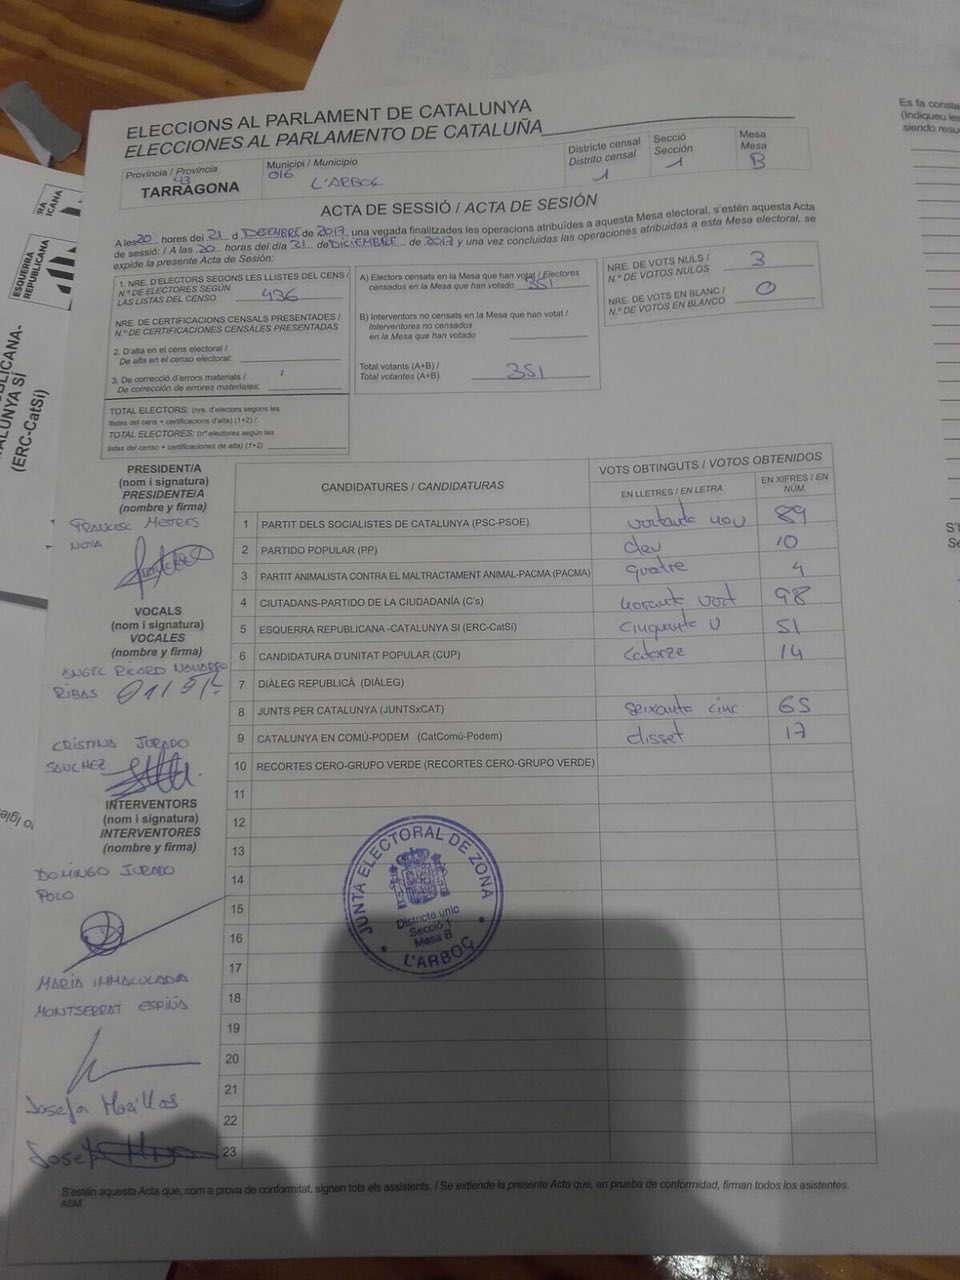 ELECCIONS AL PARLAMENT DE CATALUNYA
ELECCIONES AL PARLAMENTO DE CATALUÑA
Província / Provincia
43
TARRAGONA
Municipi / Municipio
016
L'ARBOÇ
Districte censal
Distrito censal
1
Secció
Sección
1
Mesa
Mesa
B
ACTA DE SESSIÓ / ACTA DE SESIÓN
A les 20 hores del 21 d DESEMBRE de 2017, una vegada finalitzades les operacions atribuïdes a aquesta Mesa electoral, s'estén aquesta Acta
de sessió: / A las 20 horas del día 21 de DICIEMBRE de 2017 y una vez concluidas las operaciones atribuidas a esta Mesa electoral, se
expide la presente Acta de Sesión:
1. NRE. D'ELECTORS SEGONS LES LLISTES DEL CENS /
N.º DE ELECTORES SEGÚN
LAS LISTAS DEL CENSO 436
NRE. DE CERTIFICACIONS CENSALS PRESENTADES /
N.º DE CERTIFICACIONES CENSALES PRESENTADAS
2. D'alta en el cens electoral /
De alta en el censo electoral:
3. De correcció d'errors materials /
De corrección de errores materiales:
TOTAL ELECTORS: (nre. d'electors segons les
llistes del cens + certificacions d'alta) (1+2) /
TOTAL ELECTORES: (nº electores según las
listas del censo + certificaciones de alta) (1+2)
A) Electors censats en la Mesa que han votat / Electores
censados en la Mesa que han votado 351
B) Interventors no censats en la Mesa que han votat /
Interventores no censados
en la Mesa que han votado
Total votants (A+B) /
Total votantes (A+B) 351
NRE. DE VOTS NULS /
N.º DE VOTOS NULOS 3
NRE. DE VOTS EN BLANC /
N.º DE VOTOS EN BLANCO 0
PRESIDENT/A
(nom i signatura)
PRESIDENTE/A
(nombre y firma)
FRANCESC MESTRES
NOYA
VOCALS
(nom i signatura)
VOCALES
(nombre y firma)
ANGEL RICARD NAVARRO
RIBAS
CRISTINA JURADO
SANCHEZ
INTERVENTORS
(nom i signatura)
INTERVENTORES
(nombre y firma)
DOMINGO JURADO
POLO
MARIA IMMACULADA
MONTSERRAT ESPIÑA
Josefa
Josefa
CANDIDATURES / CANDIDATURAS
VOTS OBTINGUTS / VOTOS OBTENIDOS
EN LLETRES / EN LETRA
EN XIFRES / EN NÚM.
1 PARTIT DELS SOCIALISTES DE CATALUNYA (PSC-PSOE) vuitanta nou 89
2 PARTIDO POPULAR (PP) deu 10
3 PARTIT ANIMALISTA CONTRA EL MALTRACTAMENT ANIMAL-PACMA (PACMA) quatre 4
4 CIUTADANS-PARTIDO DE LA CIUDADANÍA (C's) noranta vuit 98
5 ESQUERRA REPUBLICANA -CATALUNYA SI (ERC-CatSí) cinquanta u 51
6 CANDIDATURA D'UNITAT POPULAR (CUP) catorze 14
7 DIÀLEG REPUBLICÀ (DIÀLEG)
8 JUNTS PER CATALUNYA (JUNTSxCAT) seixanta cinc 65
9 CATALUNYA EN COMÚ-PODEM (CatComú-Podem) disset 17
10 RECORTES CERO-GRUPO VERDE (RECORTES CERO-GRUPO VERDE)
11
12
13
14
15
16
17
18
19
20
21
22
23
JUNTA ELECTORAL DE ZONA
Districte únic
Secció 1
Mesa B
L'ARBOÇ
S'estén aquesta Acta que, com a prova de conformitat, signen tots els assistents. / Se extiende la presente Acta que, en prueba de conformidad, firman todos los asistentes.
ASM
ESQUERRA
REPUBLICANA
ALUNYA SÍ
(ERC-CatSí)
Es fa consta
(Indiqueu les
siendo resu